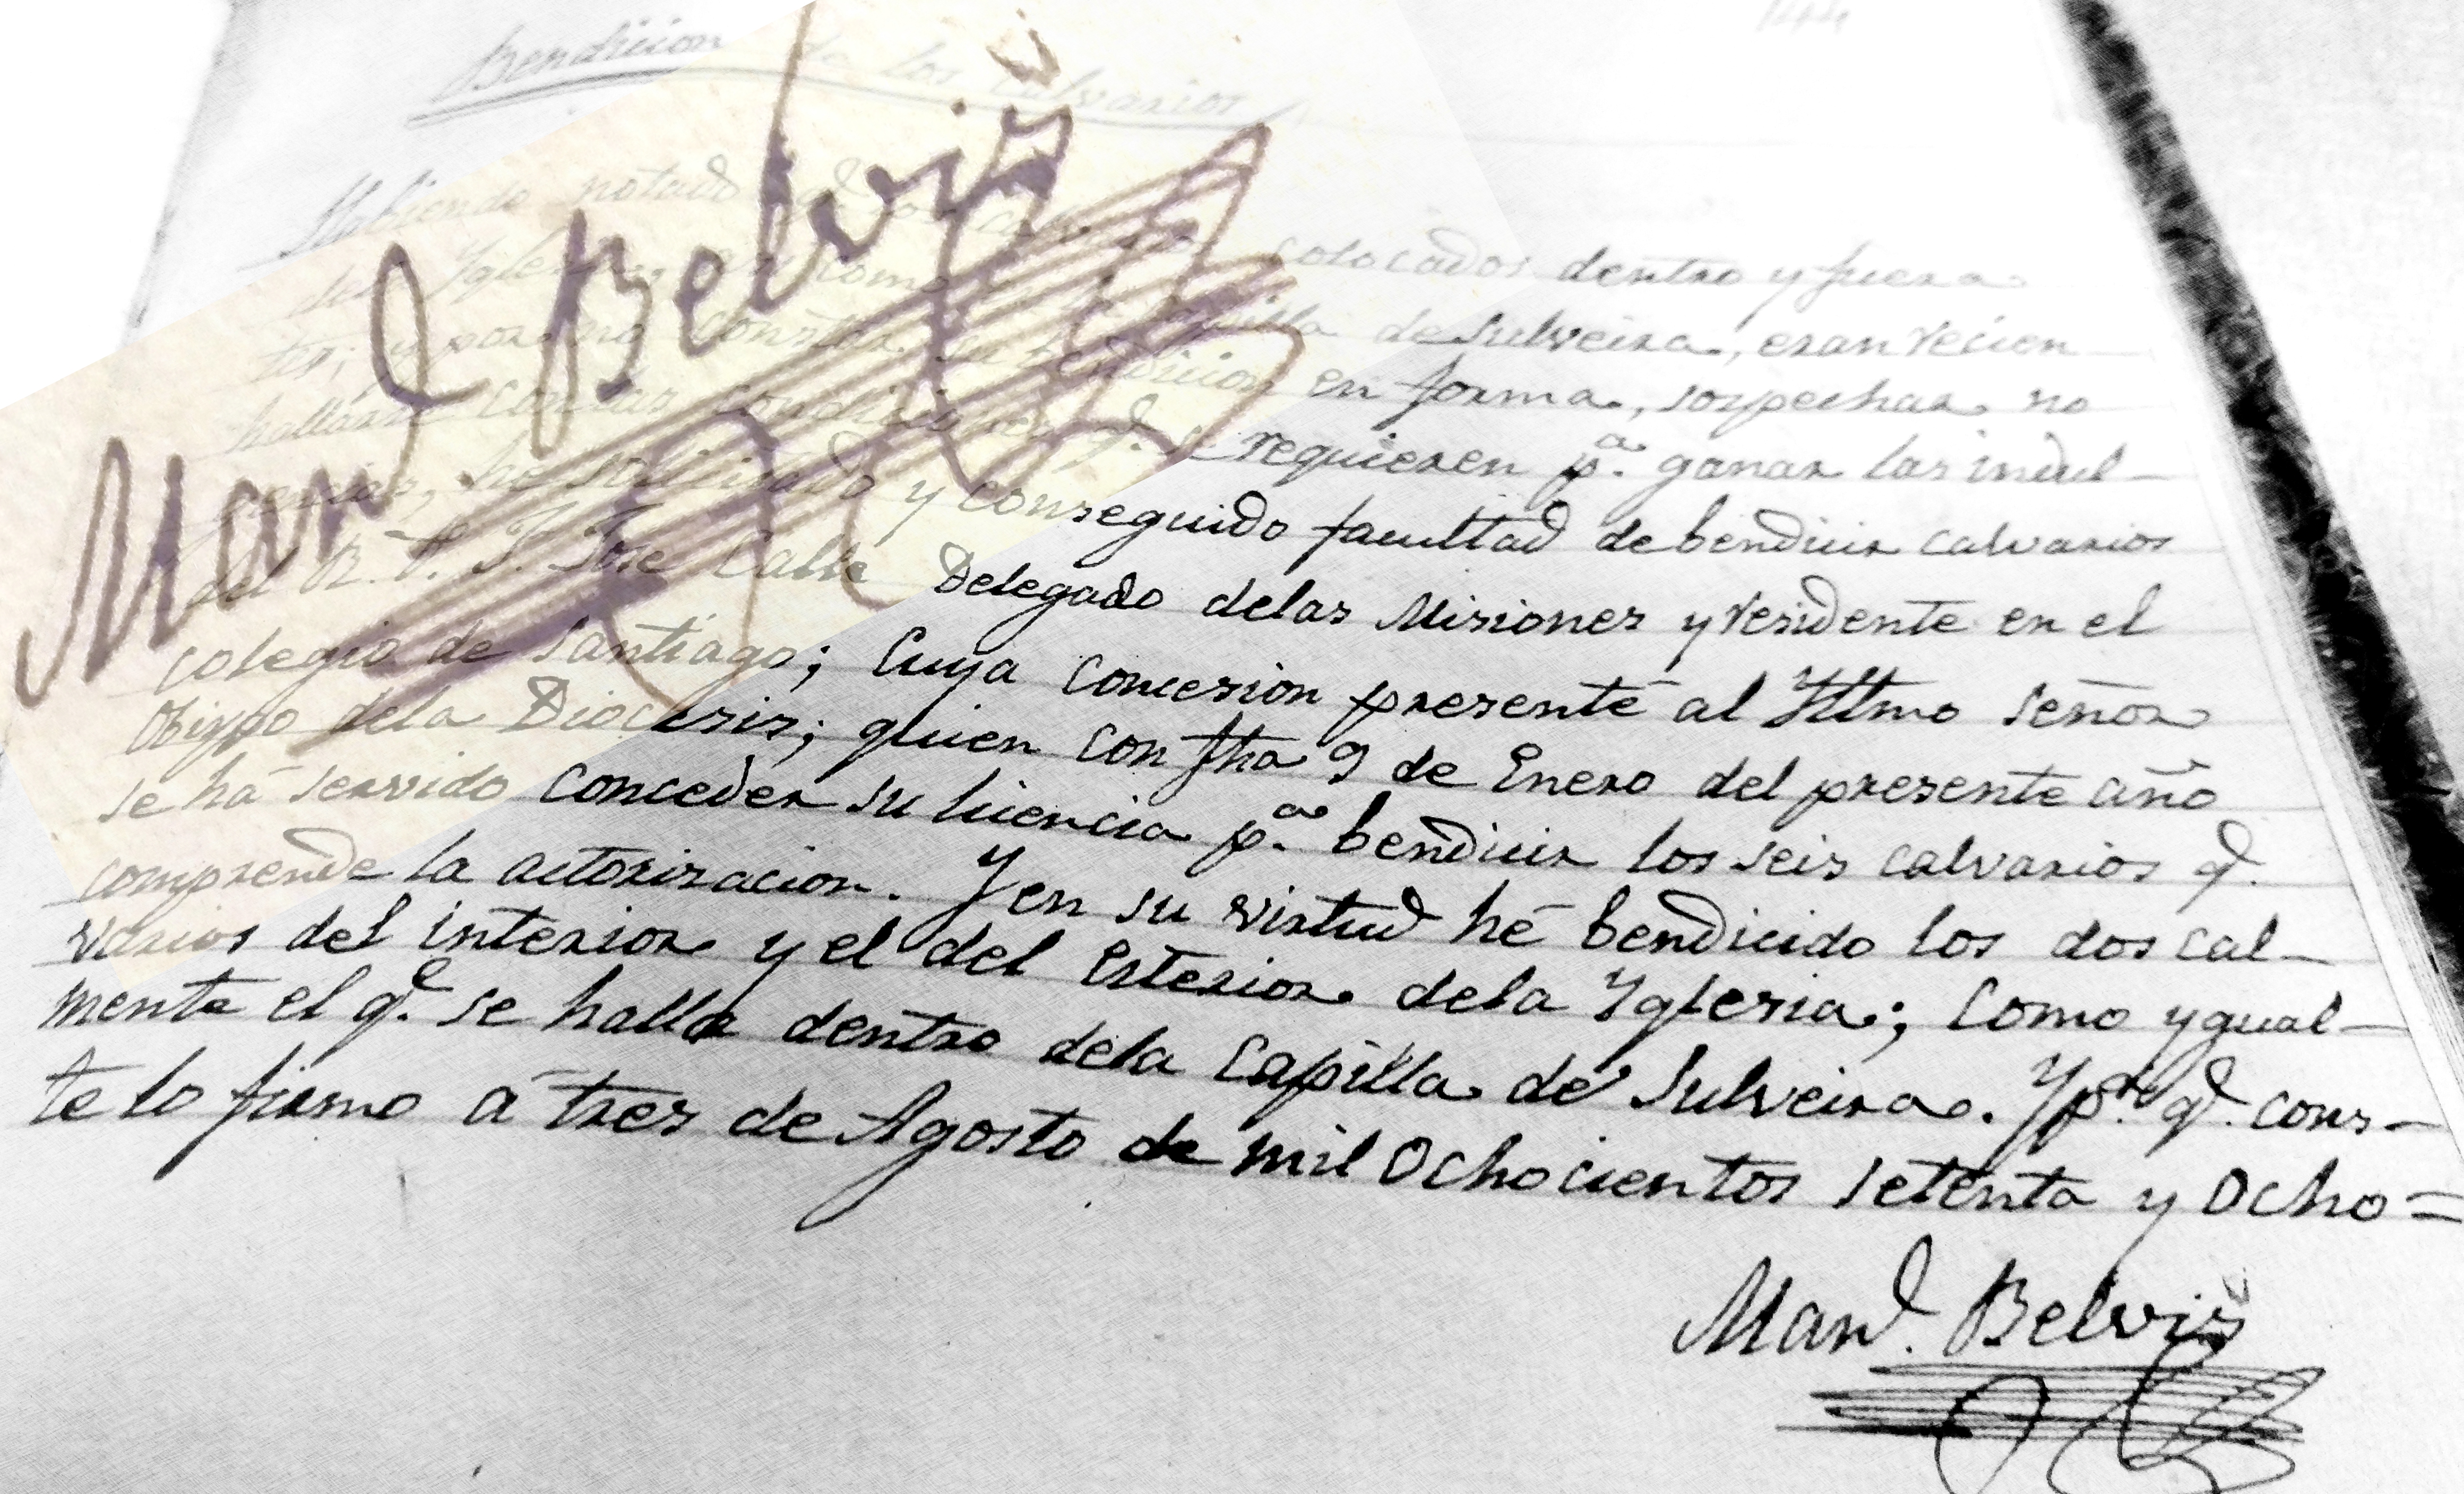 Bendicion de los Calvarios
Habiendo notado qe. los colocados dentro y fuera
Iglesia como capilla de Sulveira, eran recien
tes; y por no constar su bendicion en forma, sospechar no
hallarse con las condiciones qe. se requieren pa. ganar las indul-
gencias, he solicitado y conseguido facultad de bendicir calvarios
del R. P. F. Jose Calle Delegado delas Misiones y residente en el
Colegio de Santiago; Cuya Concesion presenté al Yltmo Señor
Obispo dela Diocesis; quien con fha 9 de Enero del presente año
se há servido conceder su licencia pa. bendicir los seis calvarios qe.
comprende la actorizacion. Y en su virtud hé bendicido los dos cal-
varios del interior y el del Esterior dela Yglesia; Como ygual-
mente el qe. se halla dentro dela Capilla de Sulveira. Y pa. qe. cons-
te lo firmo á tres de Agosto de mil Ochocientos setenta y Ocho=
Manl. Belvis
Manl Belvis